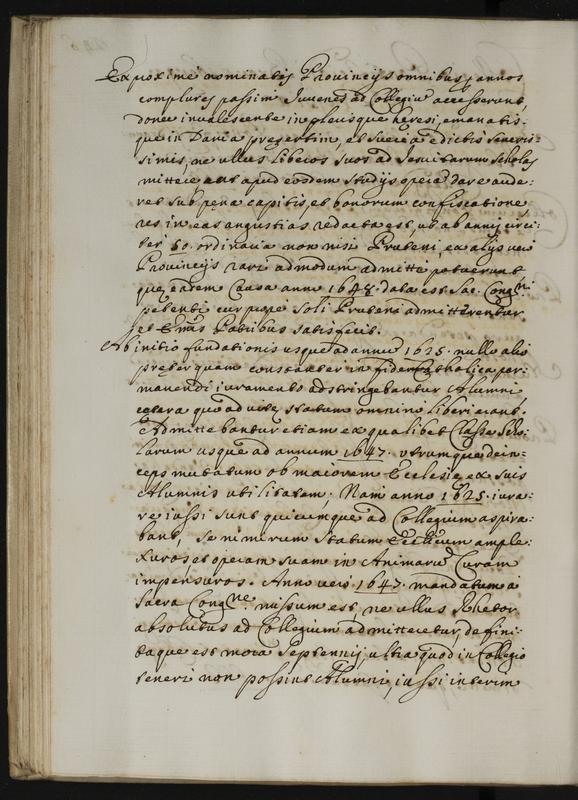 Ex proximè nominatis Prouincijs omnibus annos
complures passim Iuuenes ad Collegiũ accesserunt,
donec inualescente in plerisque heresi, emanatis-
que in Dania presertim, et Suecia edictis seueris-
simis, ne ullus liberos suos ad Iesuitarum scholas
mittere aut apud eosdem studijs operã dare aude-
ret sub pena capitis, et bonorum confiscatione,
res in eas angustias redacta est, ut ab annis circi-
ter 50. ordinariè non nisi Pruteni, ex alijs uerò
Prouincijs rari admodum admitti potuerunt
que eadem Causa anno 1648. data est Sac. Congni
petenti cur pene soli Pruteni admitterentur
et Emis Patribus satisfecit.
Ab initio fundationis usque ad annũ 1625. nullo alio
preterquam constanter in fide Catholica per-
manendi iuramento adstringebantur Alumni
cetera quo ad uite statum omnino liberi erant.
Admittebantur etiam ex qualibet Classe Scho-
larum usque ad annum 1647. utrumque dein-
ceps mutatum ob maiorem Ecclesie ex suis
Alumnis utilitatem; Nam anno 1625. iura-
re iussi sunt quicumque ad Collegium aspira-
bant, se nimirum statum Eccľicum ample-
xuros, et operam suam in Animarũ Curam
impensuros. Anno uerò 1647. mandatum à
Sacra Congne. missum est, ne ullus Rhetor.
absolutus ad Collegium admitteretur, defini-
taque est mora Septennij, ultra quod in Collegio
teneri non possint Alumni, iussi interim